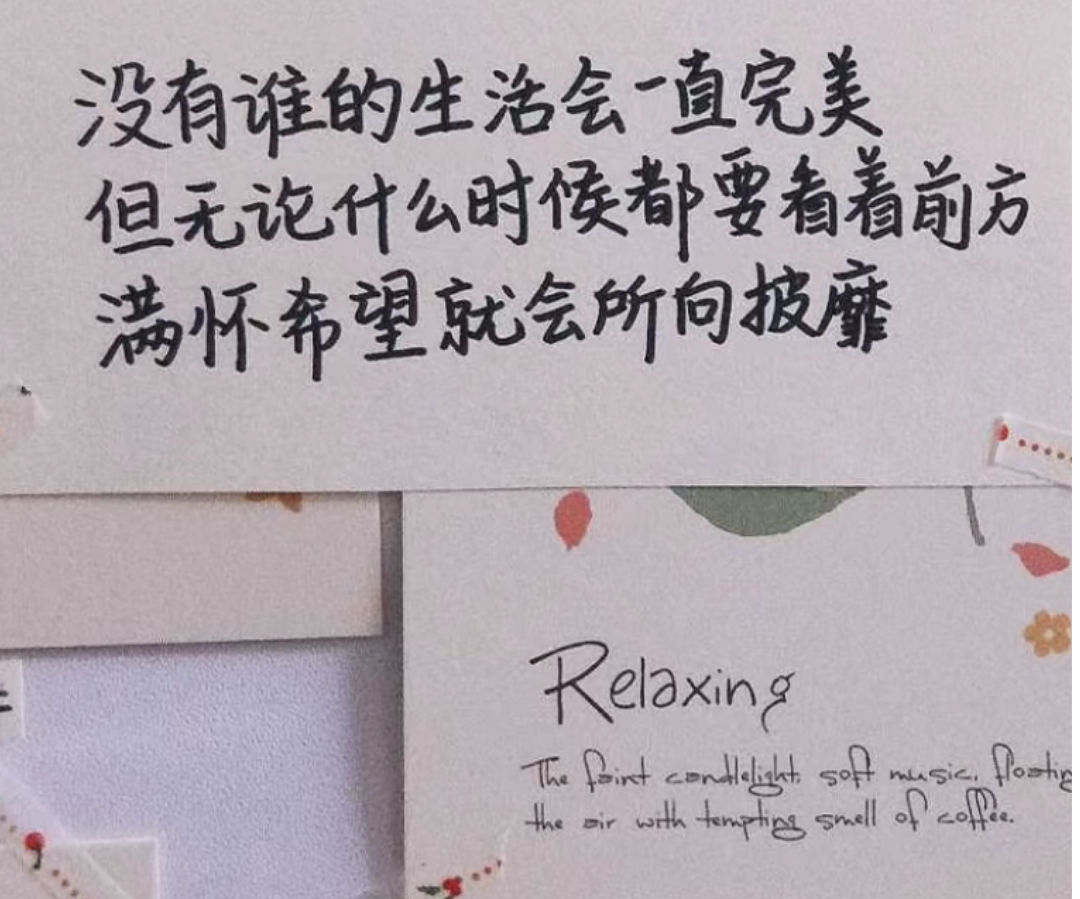 没有谁的生活会一直完美
但无论什么时候都要看着前方
满怀希望就会所向披靡
Relaxing
The faint candlelight, soft music, floating
the air with tempting smell of coffee.